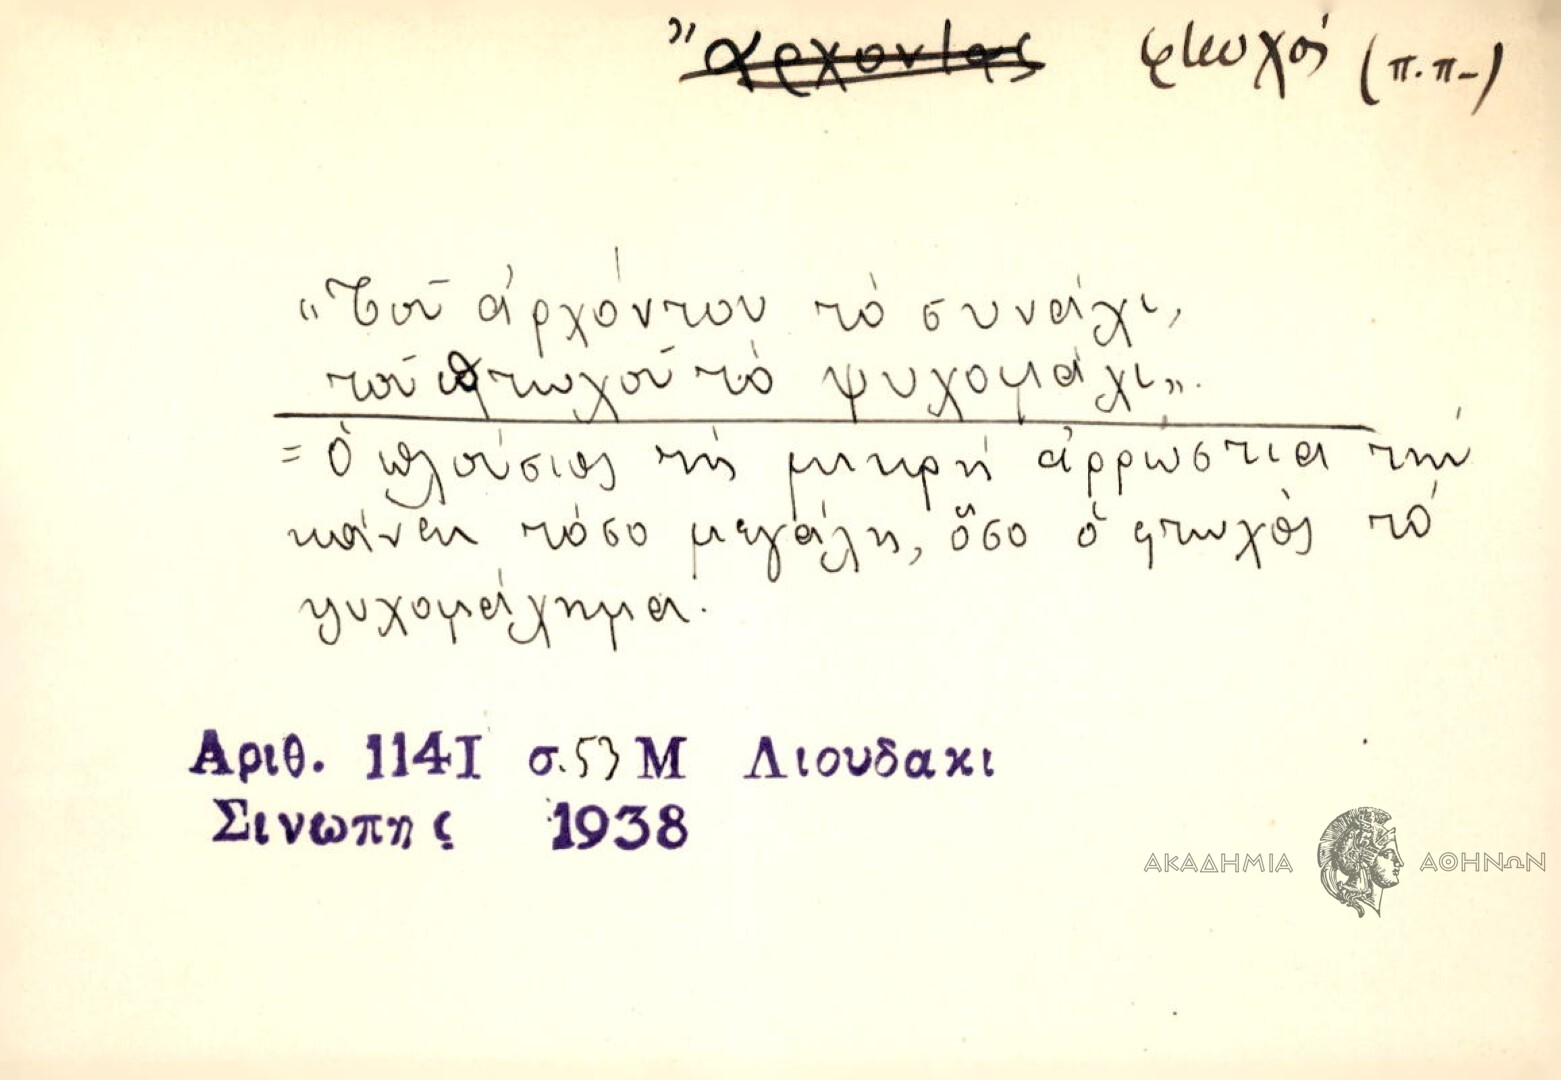 ἄρχοντας φτωχός (π.π-)
"Τοῦ ἀρχόντου τὸ συνάχι,
τοῦ φτωχοῦ τὸ ψυχομάχι".
= Ὁ πλούσιος τὴ μικρὴ ἀρρώστια τὴν
κάνει τόσο μεγάλη, ὅσο ὁ φτωχὸς τὸ
ψυχομάχημα.
Αριθ. 1141 σ.53 Μ Λιουδακι
Σινωπης 1938
ΑΚΑΔΗΜΙΑ ΑΘΗΝΩΝ